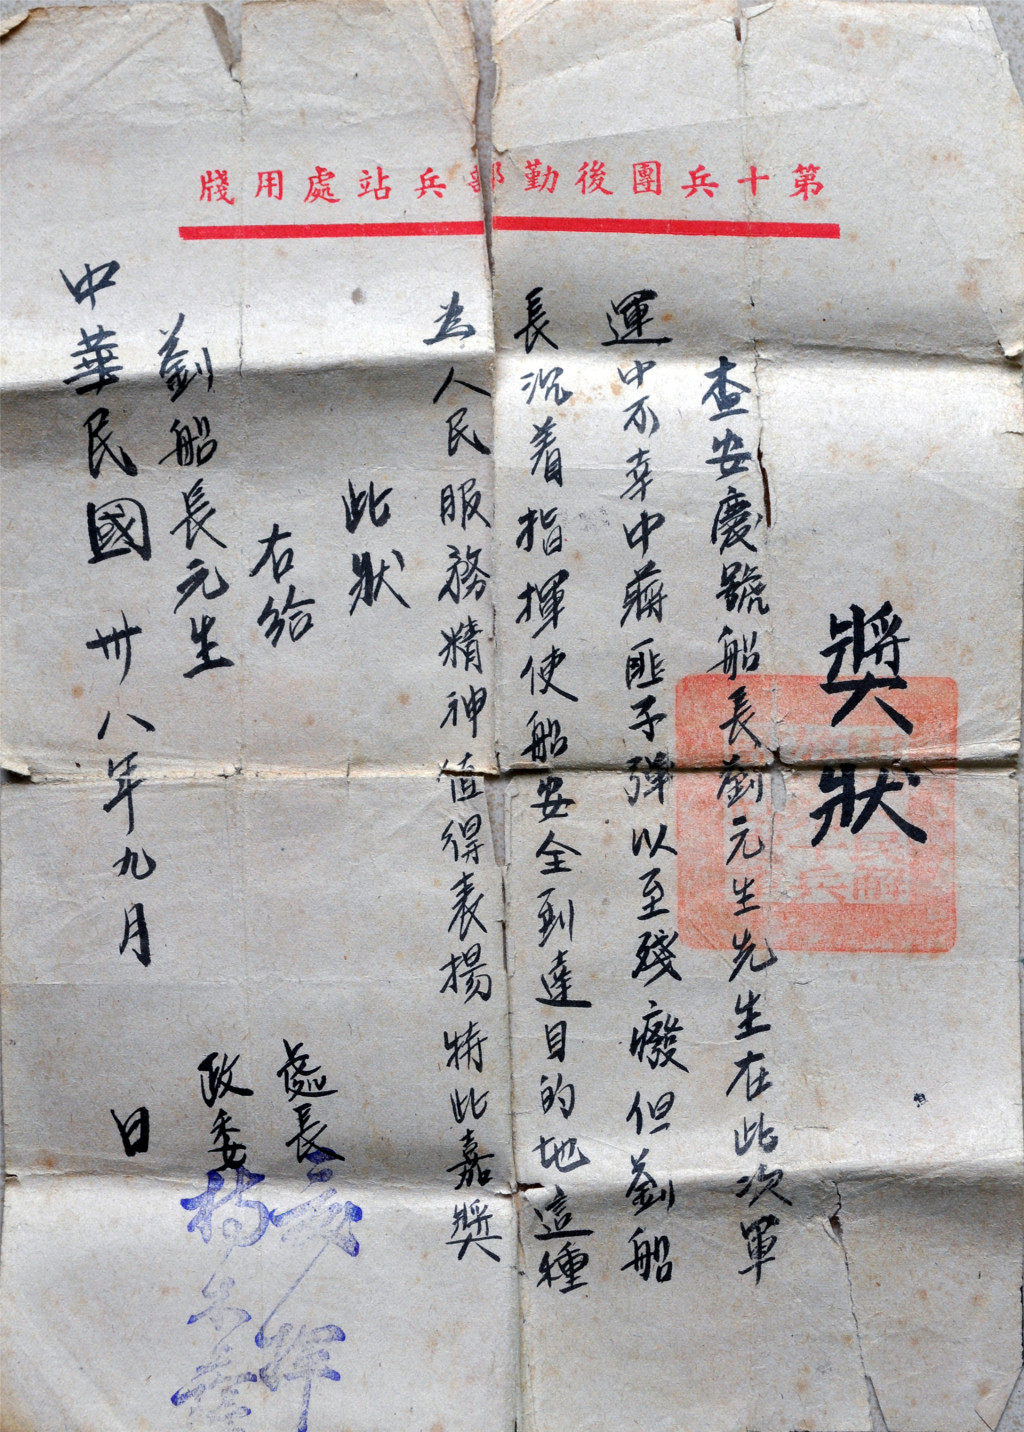 第十兵團後勤部兵站處用牋
獎狀
查安慶號船長劉元生先生在此次軍
運中不幸中蔣匪子彈以至殘廢但劉船
長沉着指揮使船安全到達目的地這種
为人民服務精神值得表揚特此嘉獎
此狀
右給
劉船長元生
處長
政委楊
中華民國卅八年九月 日